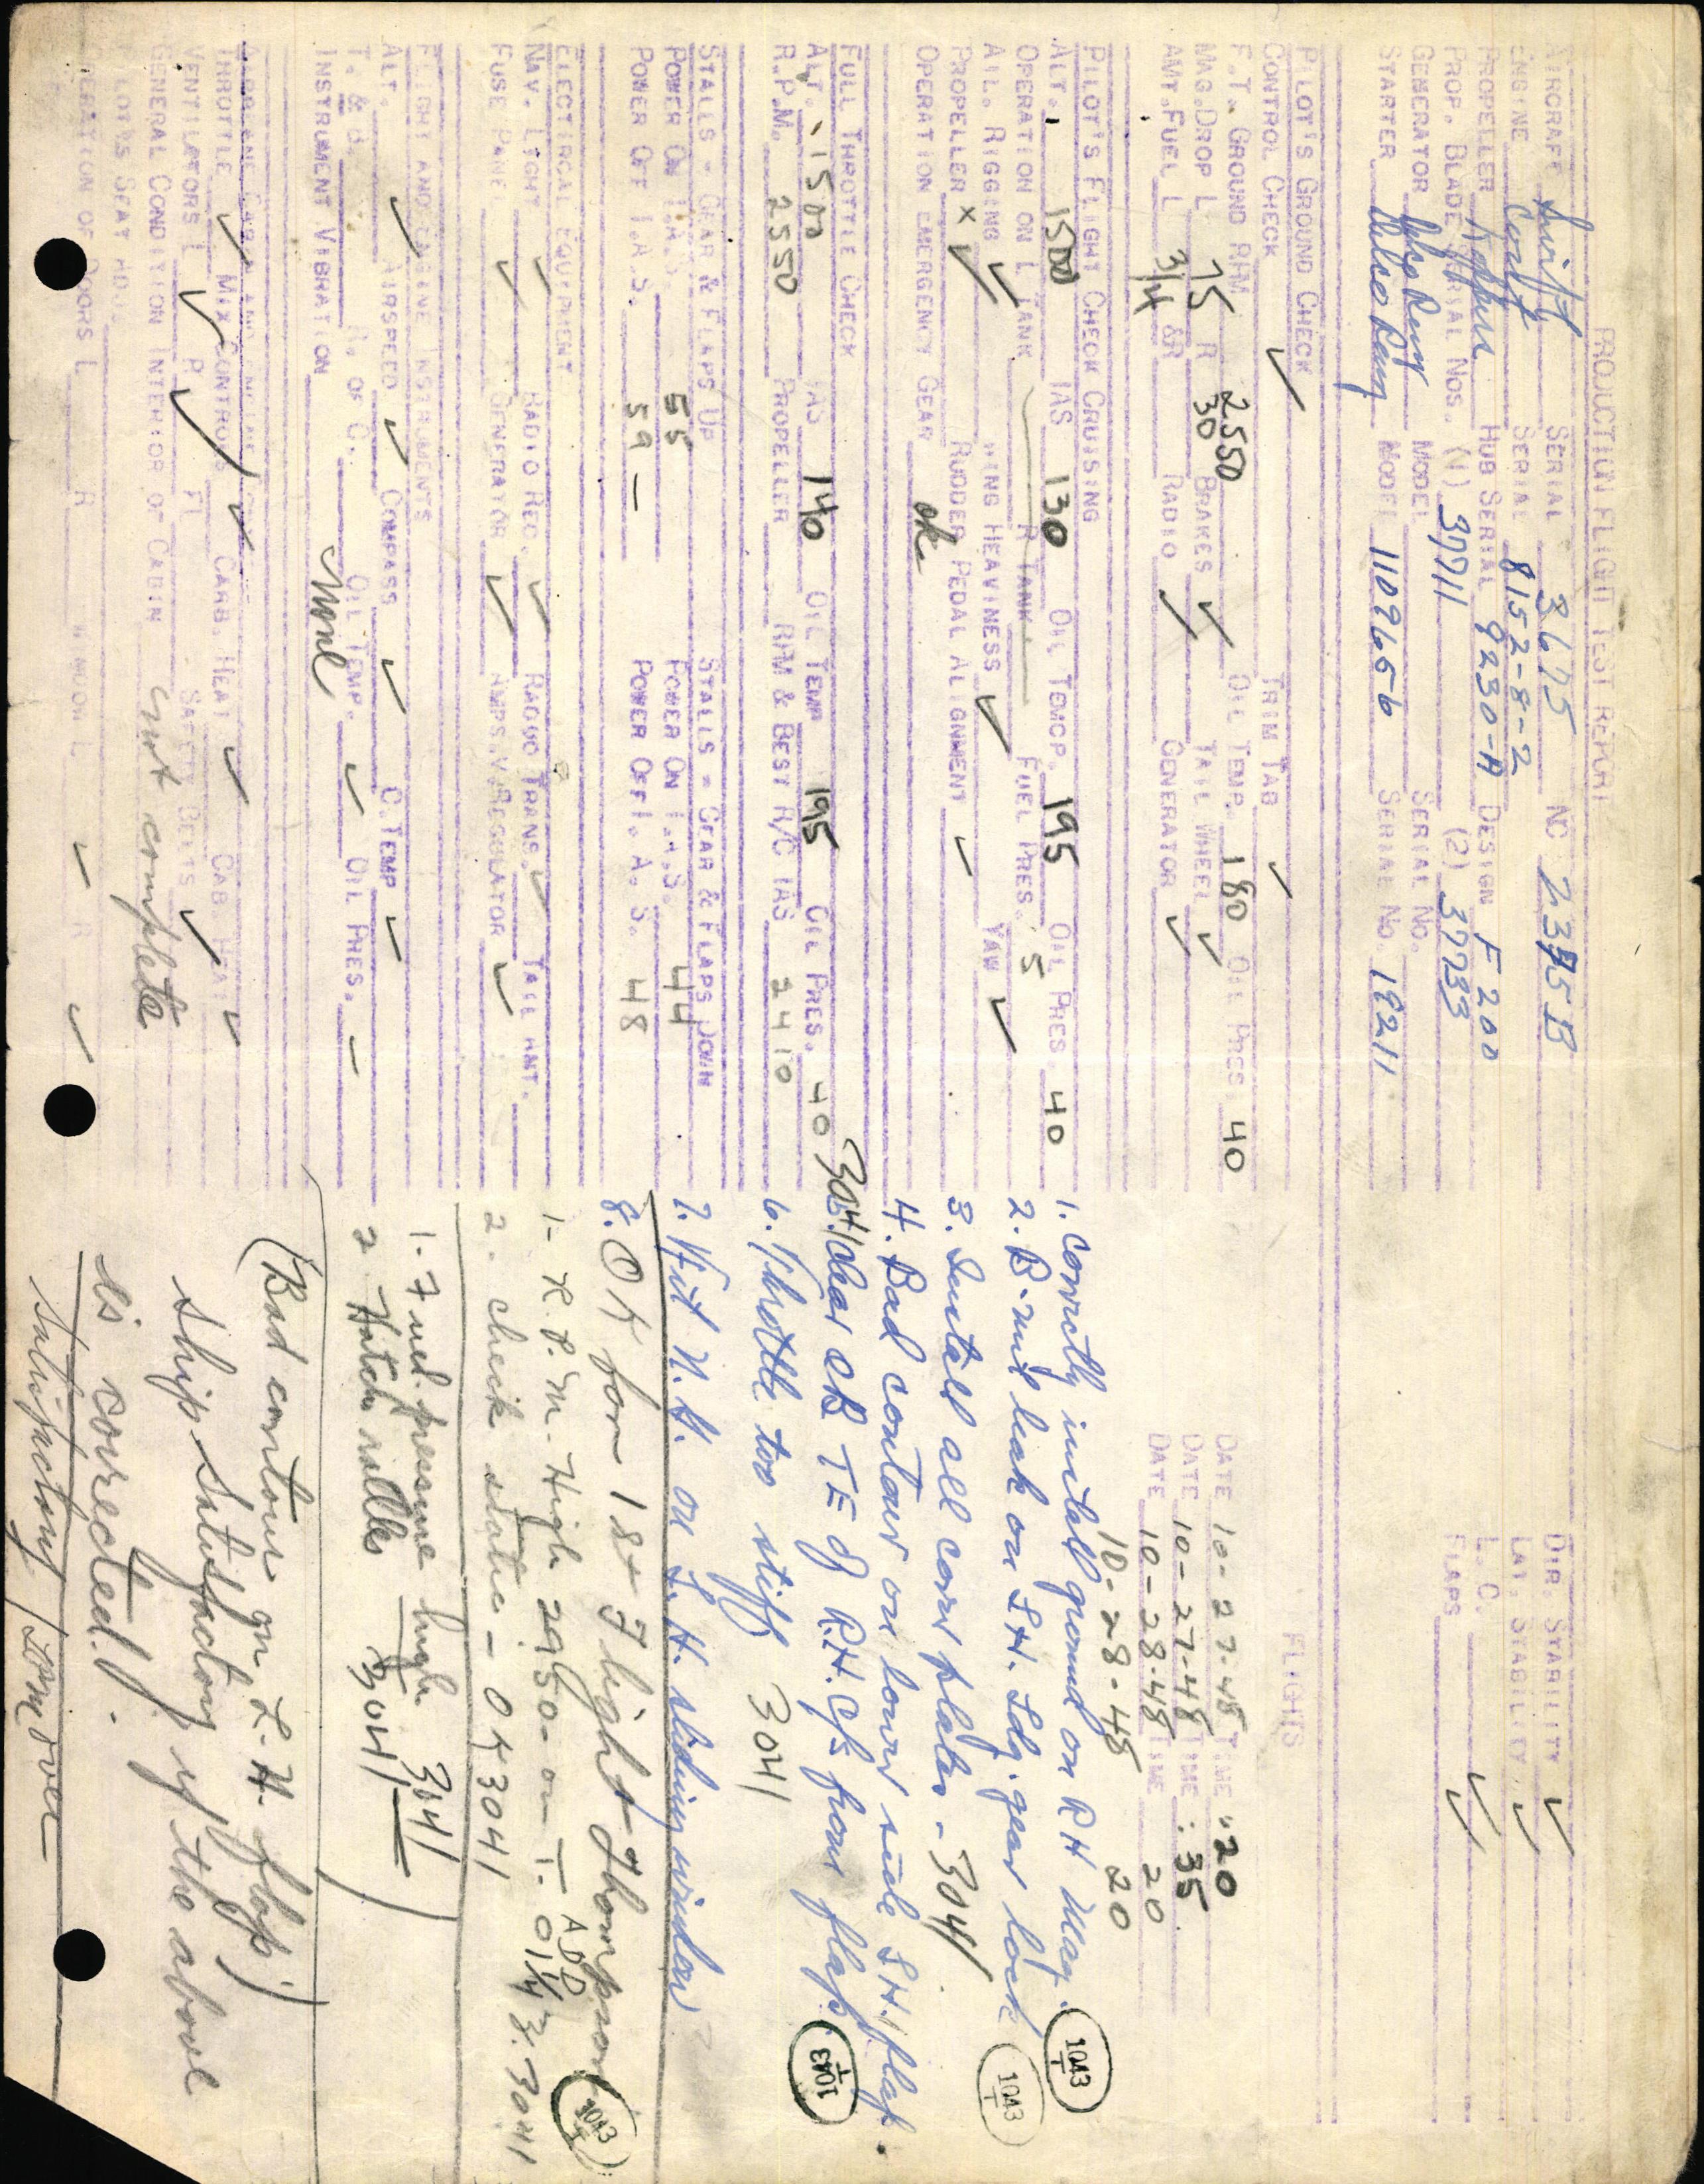 PRODUCTION FLIGHT TEST REPORT
AIRCRAFT Swift SERIAL 3675 NC 2375B DIR. STABILITY ✓
ENGINE Cont SERIAL 8152-8-2 LAT. STABILITY ✓
PROPELLER HUB SERIAL 9230-A DESIGN F200 L.O. ✓
PROP. BLADE SERIAL NOS. (1) 37711 (2) 37733 FLAPS ✓
GENERATOR Delco Remy MODEL SERIAL NO.
STARTER Delco Remy MODEL 1109656 SERIAL NO. 18211
PILOT'S GROUND CHECK FLIGHTS
CONTROL CHECK ✓ TRIM TAB ✓
F.T. GROUND RPM 2550 OIL TEMP. 180 OIL PRES. 40 DATE 10-27-48 TIME .20
MAG. DROP L 75 R 30 BRAKES ✓ TAIL WHEEL ✓ DATE 10-27-48 TIME :35
AMT. FUEL L 3/4 &R RADIO ✓ GENERATOR ✓ DATE 10-28-48 TIME 20
10-28-48 20
PILOT'S FLIGHT CHECK CRUISING
ALT. 1500 IAS 130 OIL TEMP. 195 OIL PRES. 40
OPERATION ON L TANK R TANK FUEL PRES. 5
AIL. RIGGING ✓ WING HEAVINESS ✓ YAW ✓
PROPELLER X ✓ RUDDER PEDAL ALIGNMENT ✓
OPERATION EMERGENCY GEAR ok
1. Correctly install ground on RH Mag. 1043 T
2. B-nut leak on LH. Ldg. gear lock 1043 T
3. Install all cover plates - 3041
4. Bad contour on lower side LH. flap.
FULL THROTTLE CHECK
ALT. 1500 IAS 140 OIL TEMP 195 OIL PRES. 40
R.P.M. 2550 PROPELLER RPM & BEST R/C IAS 2410
3041 Clear TE of R.H. from flap. 1043 T
6. Throttle too stiff 3041
STALLS - GEAR & FLAPS UP STALLS - GEAR & FLAPS DOWN
POWER ON I.A.S. 55 POWER ON I.A.S. 44
POWER OFF I.A.S. 59 - POWER OFF I.A.S. 48
7. on L.H. sliding window
8. OK for 1st Flight Thompson 1043 T
ELECTRICAL EQUIPMENT
NAV. LIGHT ✓ RADIO REC. ✓ RADIO TRANS. ✓ TAIL ANT.
FUSE PANEL ✓ GENERATOR ✓ AMPS. V. REGULATOR ✓
1- R.P.M. High 2950- on T. O ADD 1/4 3041
2. check static - OK 3041
FLIGHT AND ENGINE INSTRUMENTS
ALT. ✓ AIRSPEED ✓ COMPASS ✓ C. TEMP ✓
T. & B. R. OF C. OIL TEMP. ✓ OIL PRES. -
INSTRUMENT VIBRATION None
1. Fuel pressure high 3041
2 Hatch rattles 3041
CABIN HEAT ✓
THROTTLE ✓ MIX CONTROLS ✓ CARB. HEAT ✓ CAB HEAT ✓
VENTILATORS L ✓ R ✓ FL SAFETY BELTS ✓
GENERAL CONDITION INTERIOR OF CABIN not complete
PILOT'S SEAT ADJ.
OPERATION OF DOORS L R WINDOW L ✓ R ✓
(Bad contour on L.H. flap.)
Ship Satisfactory if the above
is corrected.
Satisfactory